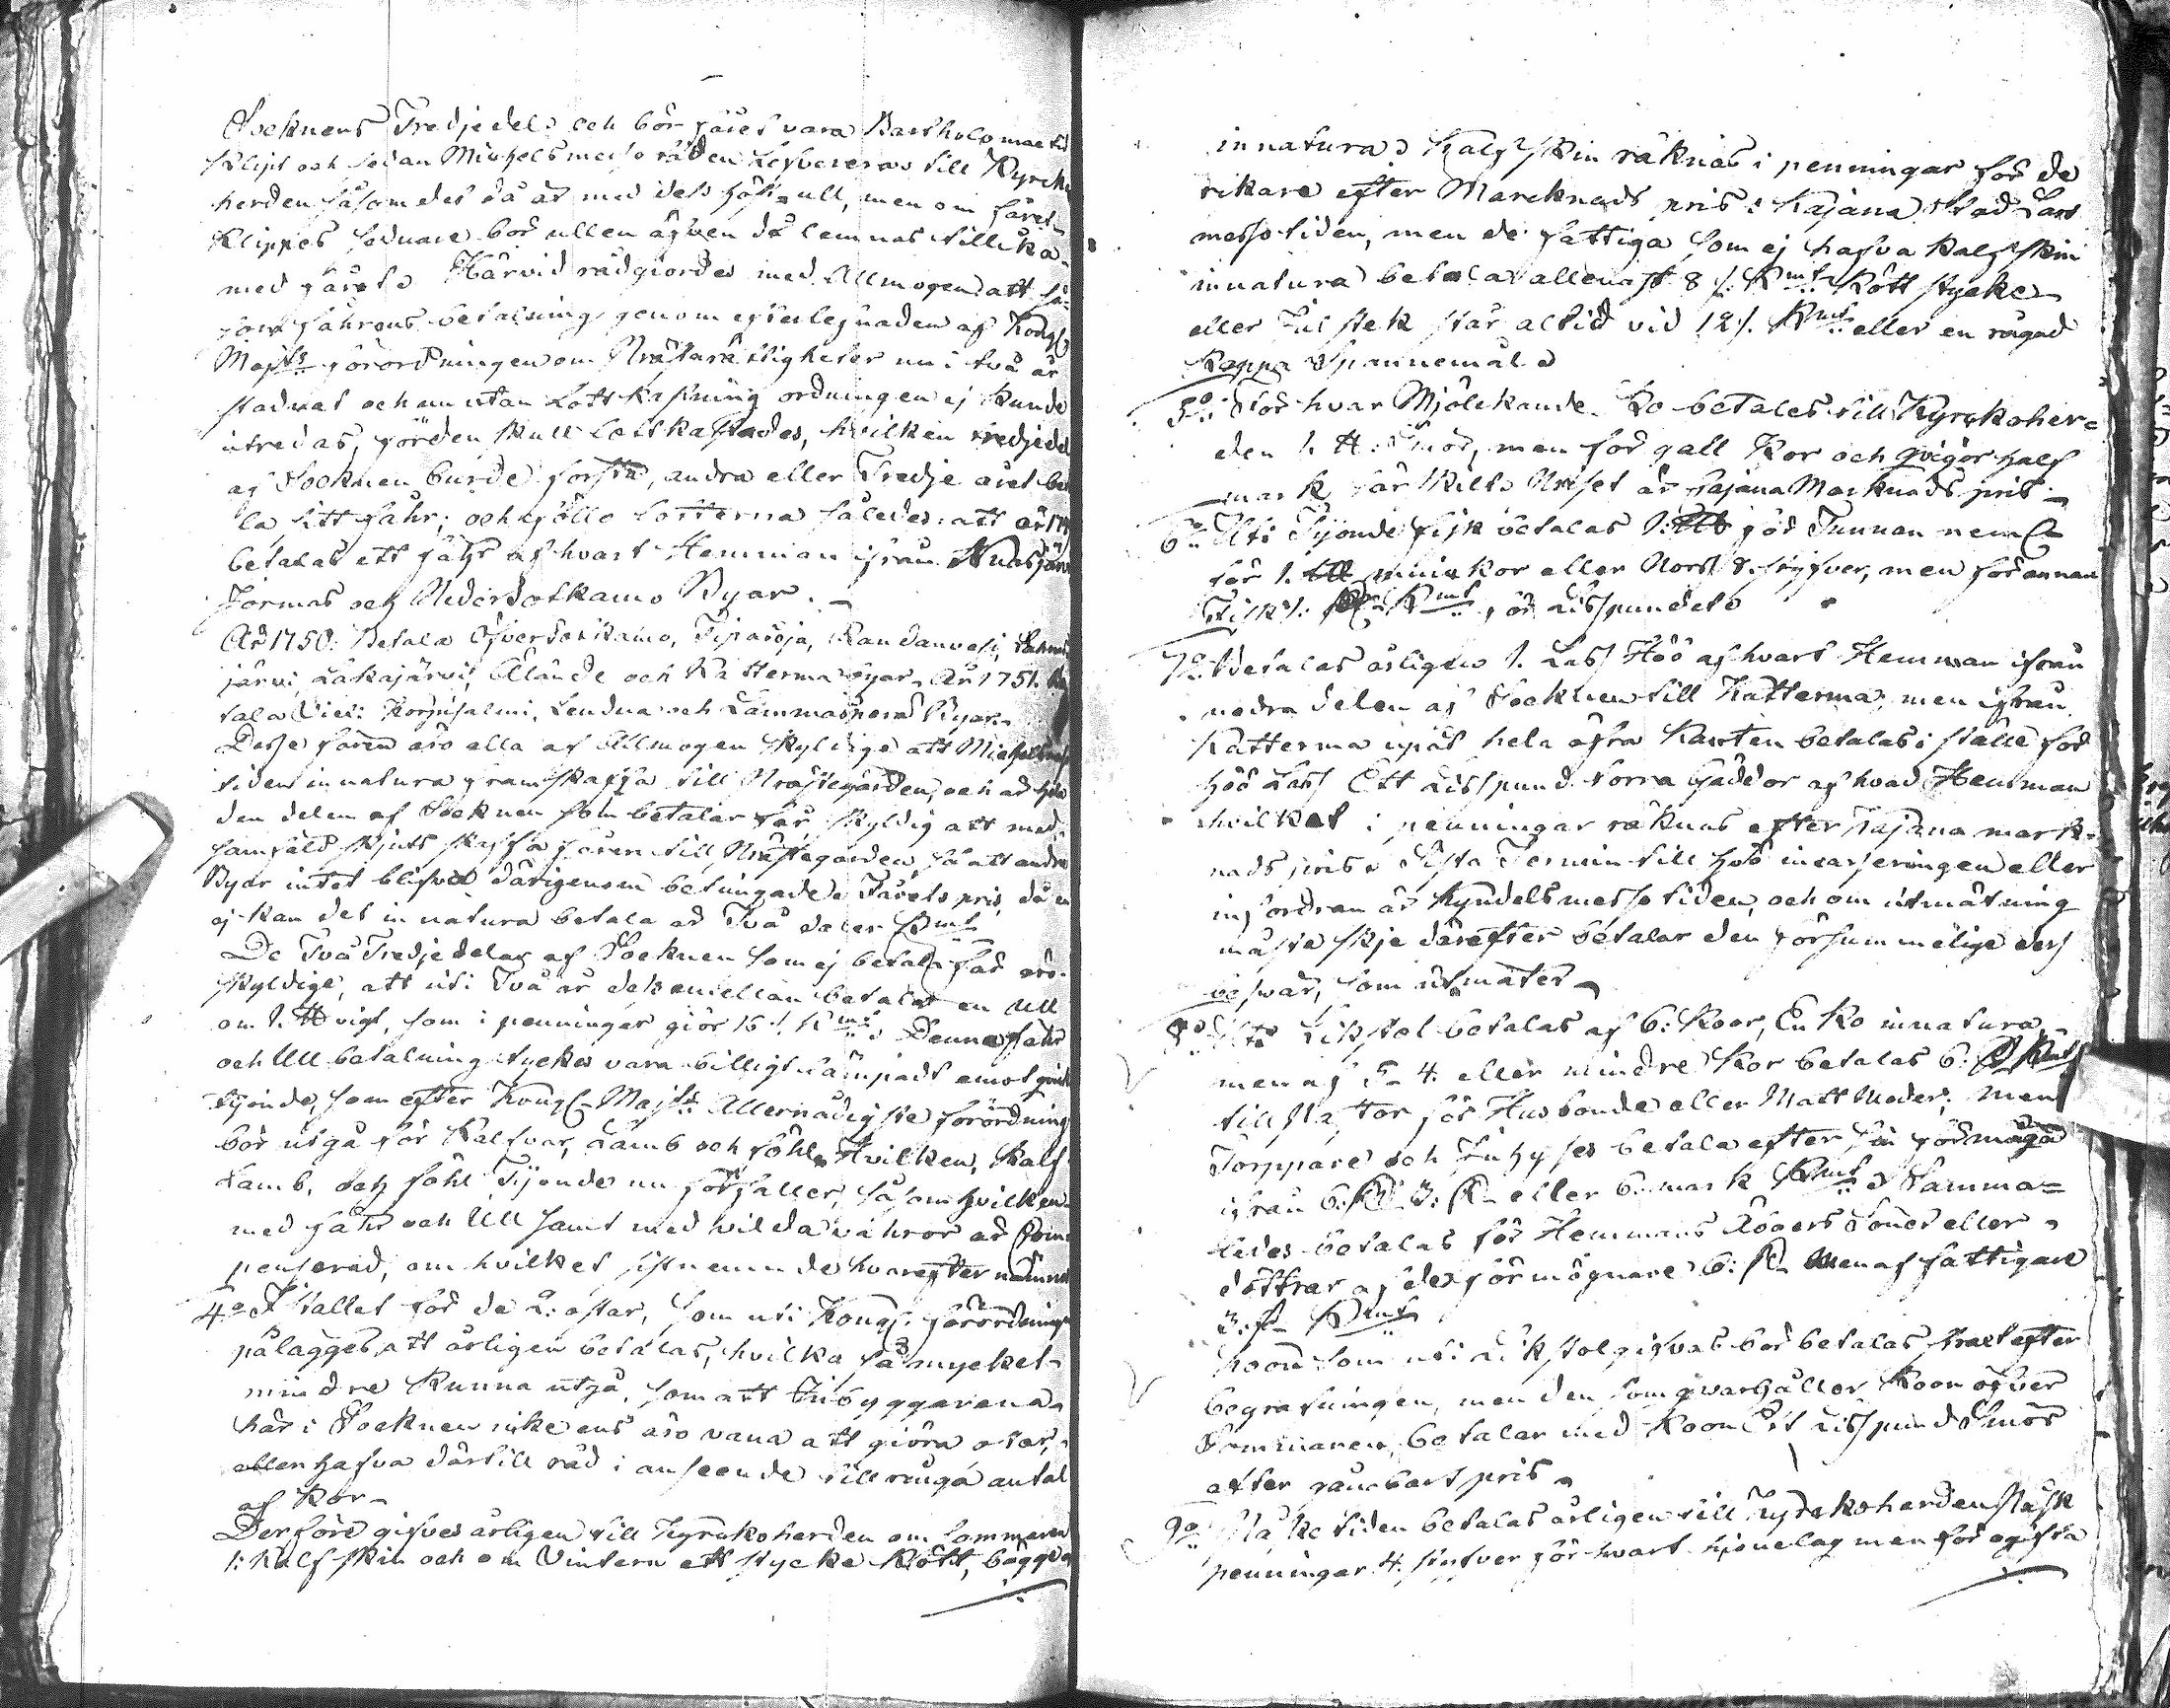 Socknens Tredjedel och bör fåret vara Bartholomaei tid
Klipt och sedan Michelsmesso tiden Lefvereras till Kyrcko
herden såsom det då är med dess höst ull, men om fåret
Klippes sednare bör ullen äfven då lemnas tillika
med fåret. Härvid rådgiordes med Allmogen att så
som fåhrens betalning genom efterlefnaden af Kongl
Majts förordningen om Prästerättigheter nu i två år
stadnat och nu utan Lottkastning ordningen ej Kunde
utredas, för den skull Lottkastades, hvilken tredjedel
af Socknen burde första, andra eller Tredje året beta
la sitt fåhr; och föllo Lotterna således: att år 1749
betalas ett fåhr af hvart Hemman ifrån Nuasjärvi
Jormas och Neder Sotkamo Byar.
År 1750. Betala Öfver Sotkamo, Tipasoja, Kandanvesi, Lahna
järvi, Lakajärvi, Alande och Katterma byar. År 1751. be
tala Viex: Korpisalmi, Lendua och Lammasperä Byar.
Desse fåren äro alla af Allmogen skyldige att Michelsmesso
tiden in natura framskaffa till Prästegården, och är hela
den delen af Socknen som betalar får skyldig att med
samfäld skjuts skaffa fåren till Prästegården, så att andre
Byar intet blifva därigenom betungade. Fårets pris, då en
ej kan det in natura betala är Två daler Kmt
De Två Tredjedelar af Socknen som ej betala får äro
skyldige, att uti Två år dess emellan betala en Ull
om 1. ℔ vigt, som i penningar giör 16 /. Kmt. Denna fåhr
och Ull betalning tyckes vara billigt lämpadt emot quick
tijonde, som efter Kongl. Majts Allernådigste förordning
bör utgå för Kalfvar, Lamb och föhl. Hvilken, Kalf
Lamb, och föhl Tijonde nu förfaller, såsom hvilken
med fåhr och Ull samt med vilda vahror är Com
penserad, om hvilket sistnemnde hvarefter nämnes
4:o I stället för de 2: ostar, som uti Kongl. förordning
pålägges att årligen betalas, hvilka så mycket
mindre Kunna utgå, som att Inbyggarena
här i Socknen icke ens äro vana att giöra ostar,
eller hafva därtill råd i anseende till ringa antal
af Kor
Derföre gifves årligen till Kyrkoherden om Sommaren
1: Kalfskin och om Vintern ett stycke Kött, bägge
in natura. Kalfskin räknas i penningar för de
rikare efter Marcknads pris i Kajana stad Lars
messotiden, men de fattiga som ej hafva Kalfskin
in natura betala allenast 8 /. Kmt. Kött stycke
eller Julstek står altid vid 12 /. Kmt eller en rågad
Kappa Spannemål.
5:o För hvar Mjölckande Ko betales till Kyrckoher=
den 1. ℔: Smör, men för gall Kor och qvigor half
mark Särskilt. Priset är Kajana Marknads pris
6:o Uti Tijonde fisk betalas 1: L℔ för Tunnan neml.
för 1. L℔ muikor eller Nors 8. styfver, men för annan
Fisk 1. Kmt för Lisspundet.
7:o Betalas årligen 1. Lass Höö af hvart Hemman ifrån
nedra delen af Socknen till Katterma, men ifrån
Katterma upåt hela öfra Kanten betalas i ställe för
höö Lass Ett Lisspund torra Gäddor af hvad Hemman
hvilket i penningar räknas efter Kajana mark=
nads pris. Sista Termin till höö incasseringen eller
infordran är Kyndelsmesso tiden, och om utmätning
måste skje därefter betalar den försummelige dess
besvär, som utmäter
8:o Uti Likstol betalas af 6: Koor, En Ko in natura,
men af 5. 4. eller mindre Kor betalas 6. Kmt
till Pastor för Husbonde eller Matt Moder; Men
Torppare och Inhyses betala efter sin förmåga
ifrån 6: 3: eller 6. mark Kmt. Samma=
ledes betalas för Hemmans Ägers Söner eller
döttrar af de förmögnare 6: Men af fattigare
3: Kmt
Koon som uti Likstol gifvas bör betalas strax efter
begrafningen, men den som qvarhåller Koon öfver
Sommaren, betalar med Koon Ett Lisspund Smör
efter gångbart pris
9:o Påske tiden betalas årligen till Kyrckoherden Påsk
penningar 4. styfver för hvart hionelag men för ogifta